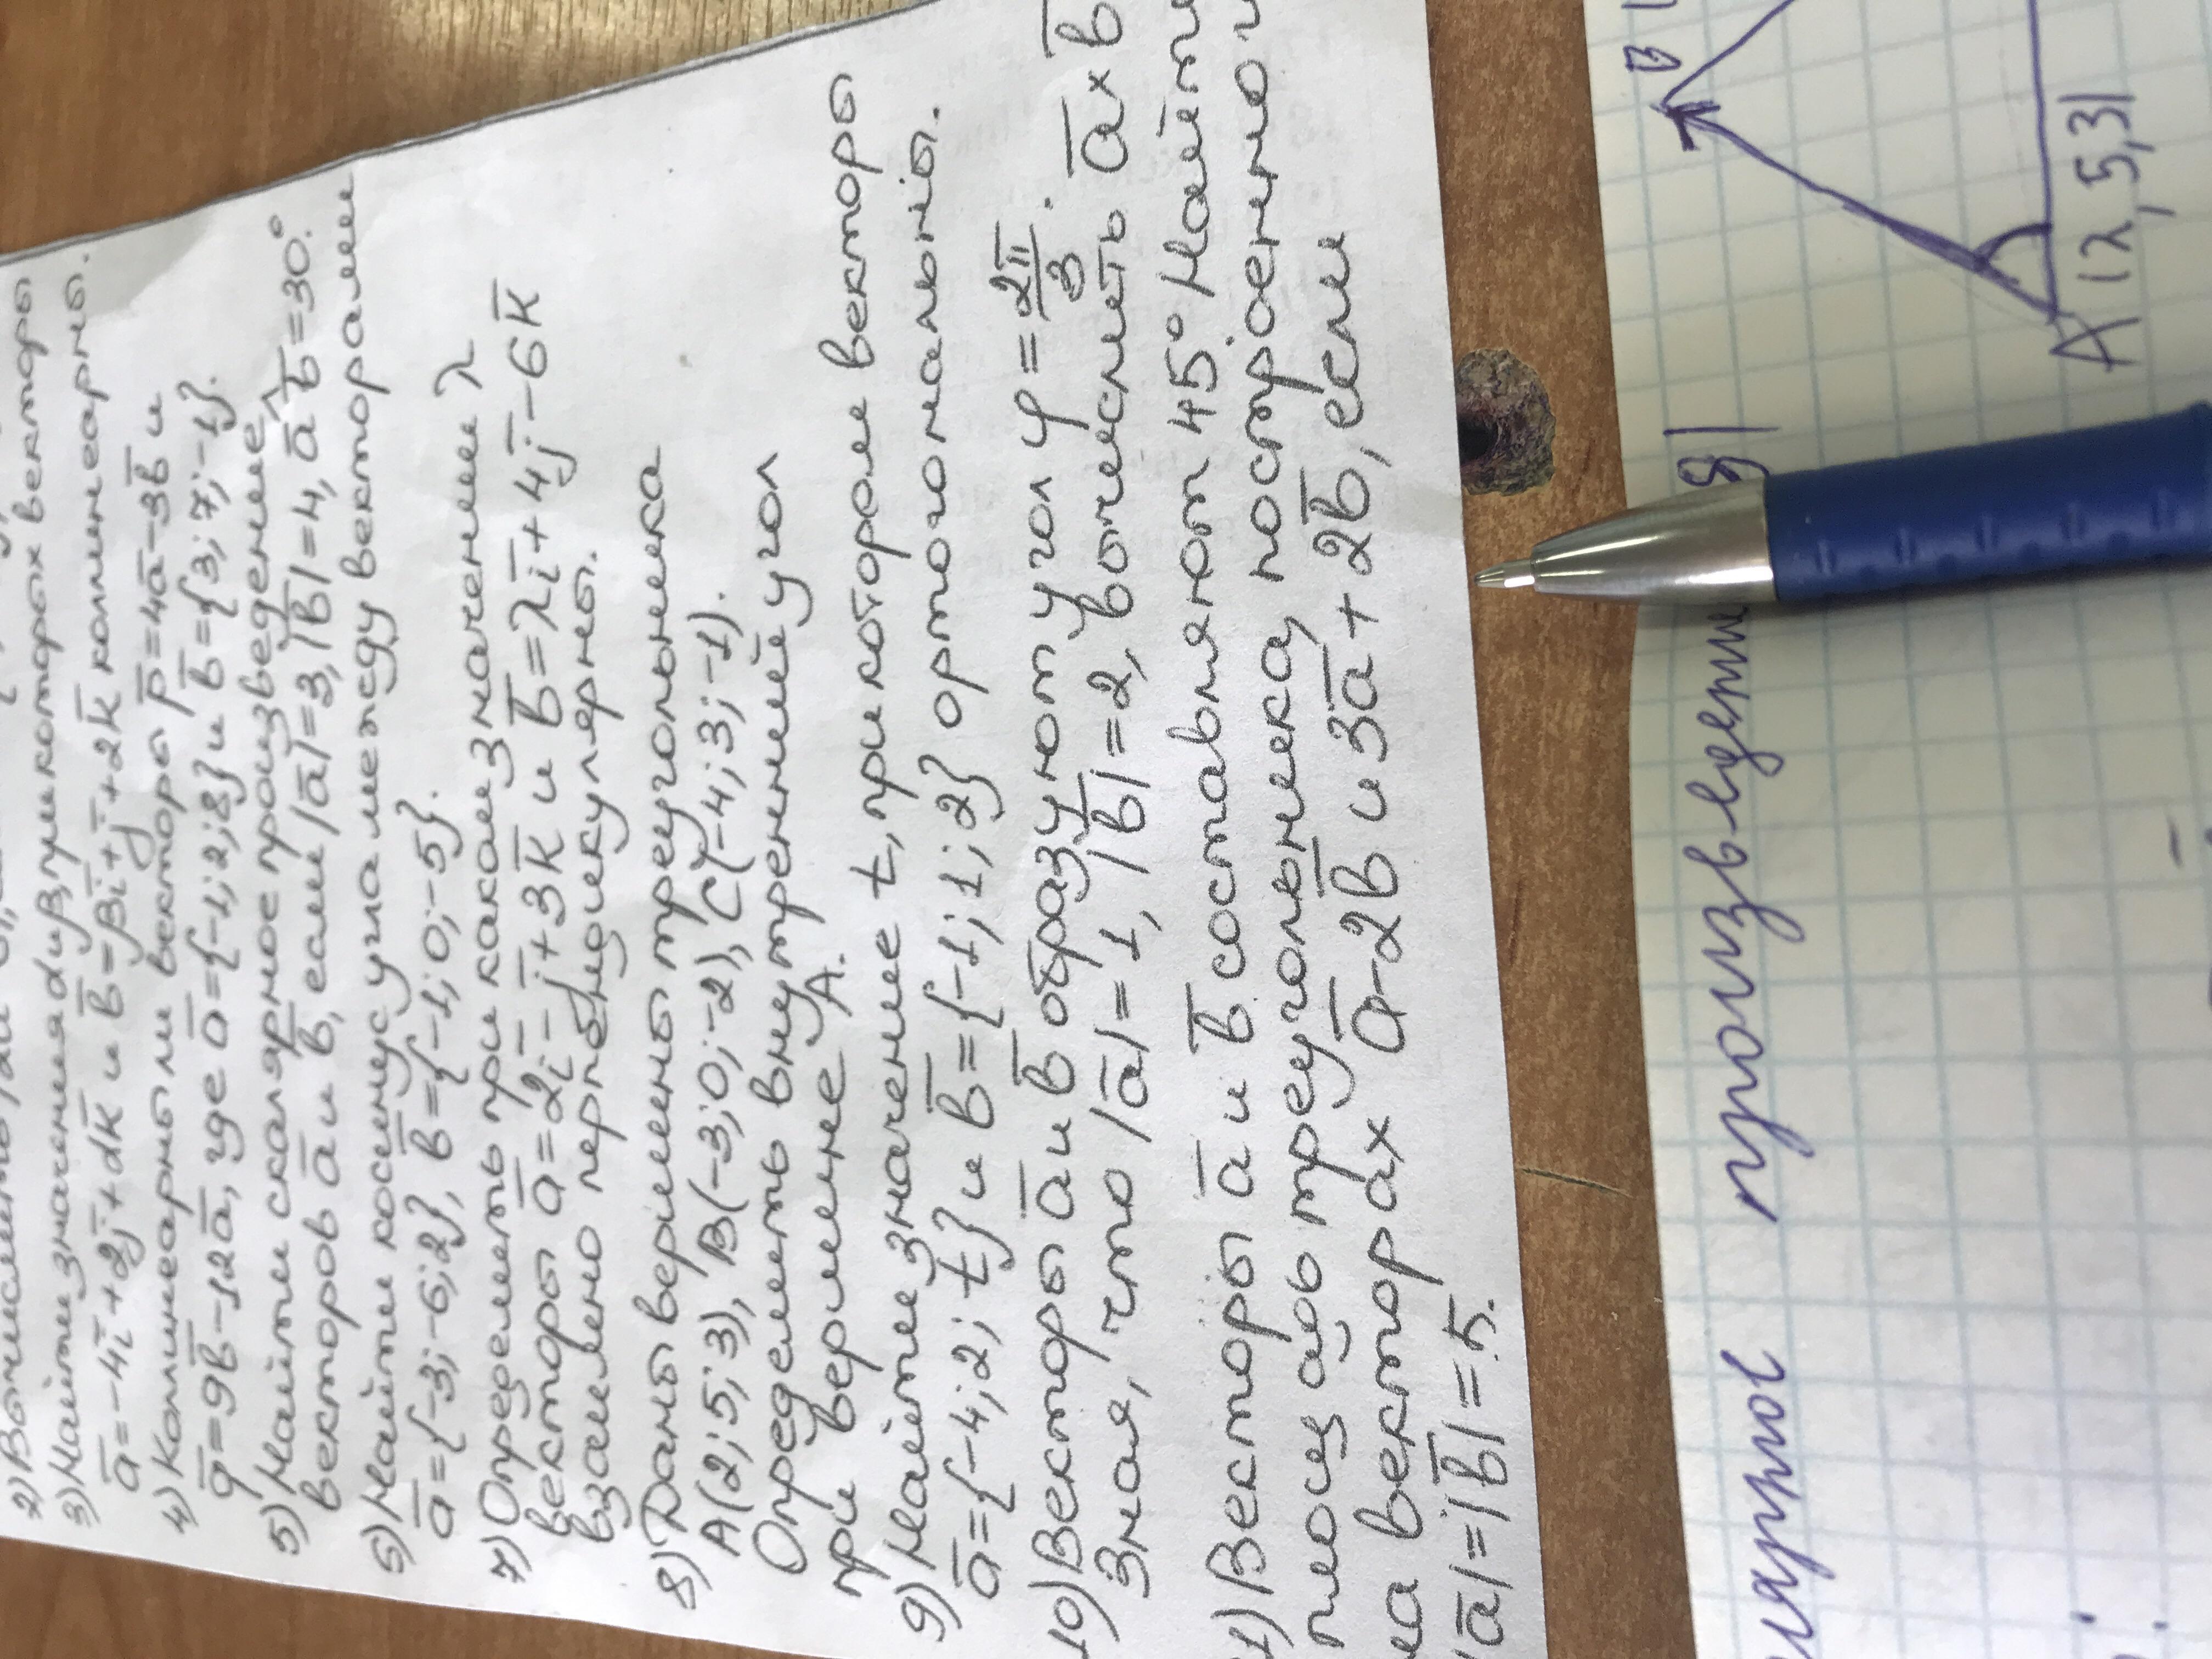 2) Вычислить
3) Найти значения α и β при которых векторы
ā=-4ī+2j̄+αk̄ и b̄=βī+j̄+2k̄ коллинеарны.
4) Коллинеарны ли векторы p̄=4ā-3b̄ и
q̄=9b̄-12ā, где ā={-1;2;8} и b̄={3;7;-1}.
5) Найти скалярное произведение
векторов ā и b̄, если |ā|=3, |b̄|=4, ā^b̄=30°.
6) Найти косинус угла между векторами
ā={-3;-6;2}, b̄={-1;0;-5}.
7) Определить при каком значении λ
векторы ā=2ī-j̄+3k̄ и b̄=λī+4j̄-6k̄
взаимно перпендикулярны.
8) Даны вершины треугольника
A(2;5;3), B(-3;0;-2), C(-4;3;-1).
Определить внутренний угол
при вершине A.
9) Найти значение t, при котором векторы
ā={-4;2;t} и b̄={-1;1;2} ортогональны.
10) Векторы ā и b̄ образуют угол φ=2π/3.
Зная, что |ā|=1, |b̄|=2, вычислить ā×b̄
1) Векторы ā и b̄ составляют 45°. Найти
площадь треугольника, построенного
на векторах ā-2b̄ и 3ā+2b̄, если
|ā|=|b̄|=5.
произведен
B
A(2,5,3)